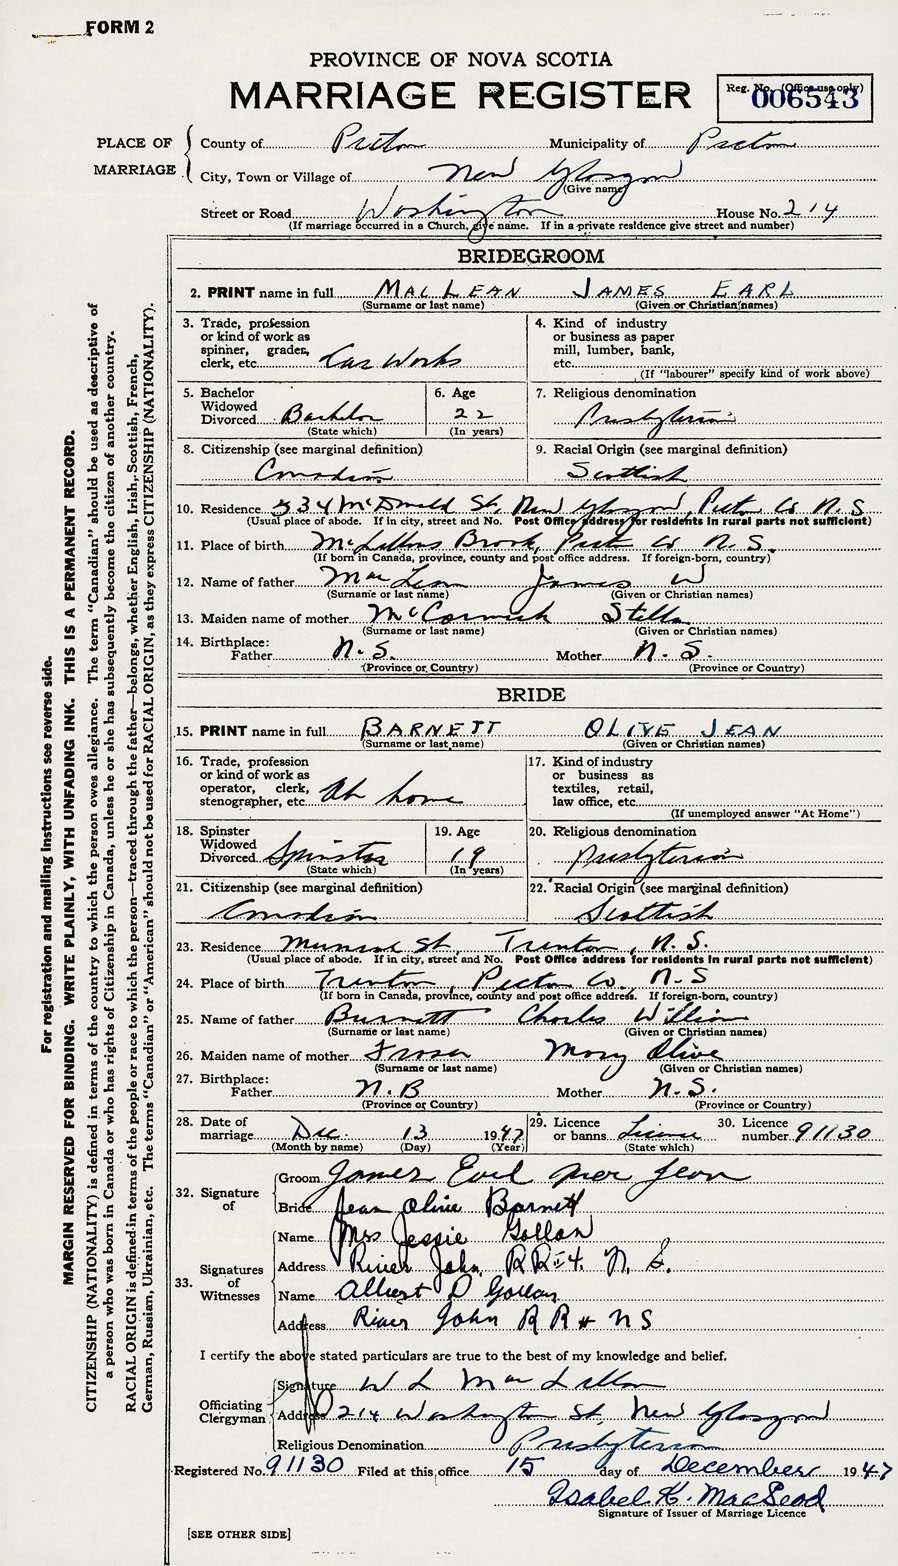 FORM 2
PROVINCE OF NOVA SCOTIA
MARRIAGE REGISTER
Reg. No. (Office use only)
006543
PLACE OF MARRIAGE
County of Pictou Municipality of Pictou
City, Town or Village of New Glasgow
(Give name)
Street or Road Washington House No. 214
(If marriage occurred in a Church, give name. If in a private residence give street and number)
BRIDEGROOM
2. PRINT name in full MACLEAN JAMES EARL
(Surname or last name) (Given or Christian names)
3. Trade, profession or kind of work as spinner, grader, clerk, etc. Car Works
4. Kind of industry or business as paper mill, lumber, bank, etc.
(If "labourer" specify kind of work above)
5. Bachelor Widowed Divorced Bachelor
(State which)
6. Age 22
(In years)
7. Religious denomination
Presbyterian
8. Citizenship (see marginal definition)
Canadian
9. Racial Origin (see marginal definition)
Scottish
10. Residence 334 McDonald St, New Glasgow, Pictou Co N.S
(Usual place of abode. If in city, street and No. Post Office address for residents in rural parts not sufficient)
11. Place of birth McLellans Brook, Pictou Co N.S.
(If born in Canada, province, county and post office address. If foreign-born, country)
12. Name of father MacLean James W
(Surname or last name) (Given or Christian names)
13. Maiden name of mother McCormick Stella
(Surname or last name) (Given or Christian names)
14. Birthplace:
Father N.S. Mother N.S.
(Province or Country) (Province or Country)
BRIDE
15. PRINT name in full BARNETT OLIVE JEAN
(Surname or last name) (Given or Christian names)
16. Trade, profession or kind of work as operator, clerk, stenographer, etc. At home
17. Kind of industry or business as textiles, retail, law office, etc.
(If unemployed answer "At Home")
18. Spinster Widowed Divorced Spinster
(State which)
19. Age 19
(In years)
20. Religious denomination
Presbyterian
21. Citizenship (see marginal definition)
Canadian
22. Racial Origin (see marginal definition)
Scottish
23. Residence Munroe St, Trenton, N.S.
(Usual place of abode. If in city, street and No. Post Office address for residents in rural parts not sufficient)
24. Place of birth Trenton, Pictou Co., N.S
(If born in Canada, province, county and post office address. If foreign-born, country)
25. Name of father Barnett Charles William
(Surname or last name) (Given or Christian names)
26. Maiden name of mother Fraser Mary Olive
(Surname or last name) (Given or Christian names)
27. Birthplace:
Father N.B Mother N.S.
(Province or Country) (Province or Country)
28. Date of marriage Dec. 13 1947
(Month by name) (Day) (Year)
29. Licence or banns License
(State which)
30. Licence number 91130
32. Signature of
Groom James Earl MacLean
Bride Jean Olive Barnett
33. Signatures of Witnesses
Name Mrs Jessie Gollan
Address River John RR#4. N.S.
Name Albert D Gollan
Address River John RR# NS
I certify the above stated particulars are true to the best of my knowledge and belief.
Officiating Clergyman
Signature W L MacLellan
Address 214 Washington St, New Glasgow
Religious Denomination Presbyterian
Registered No. 91130 Filed at this office 15 day of December 1947
Isabel K. MacLeod
Signature of Issuer of Marriage Licence
[SEE OTHER SIDE]
For registration and mailing instructions see reverse side.
MARGIN RESERVED FOR BINDING. WRITE PLAINLY, WITH UNFADING INK. THIS IS A PERMANENT RECORD.
CITIZENSHIP (NATIONALITY) is defined in terms of the country to which the person owes allegiance. The term "Canadian" should be used as descriptive of
a person who was born in Canada or who has rights of Citizenship in Canada, unless he or she has subsequently become the citizen of another country.
RACIAL ORIGIN is defined in terms of the people or race to which the person—traced through the father—belongs, whether English, Irish, Scottish, French,
German, Russian, Ukrainian, etc. The terms "Canadian" or "American" should not be used for RACIAL ORIGIN, as they express CITIZENSHIP (NATIONALITY).